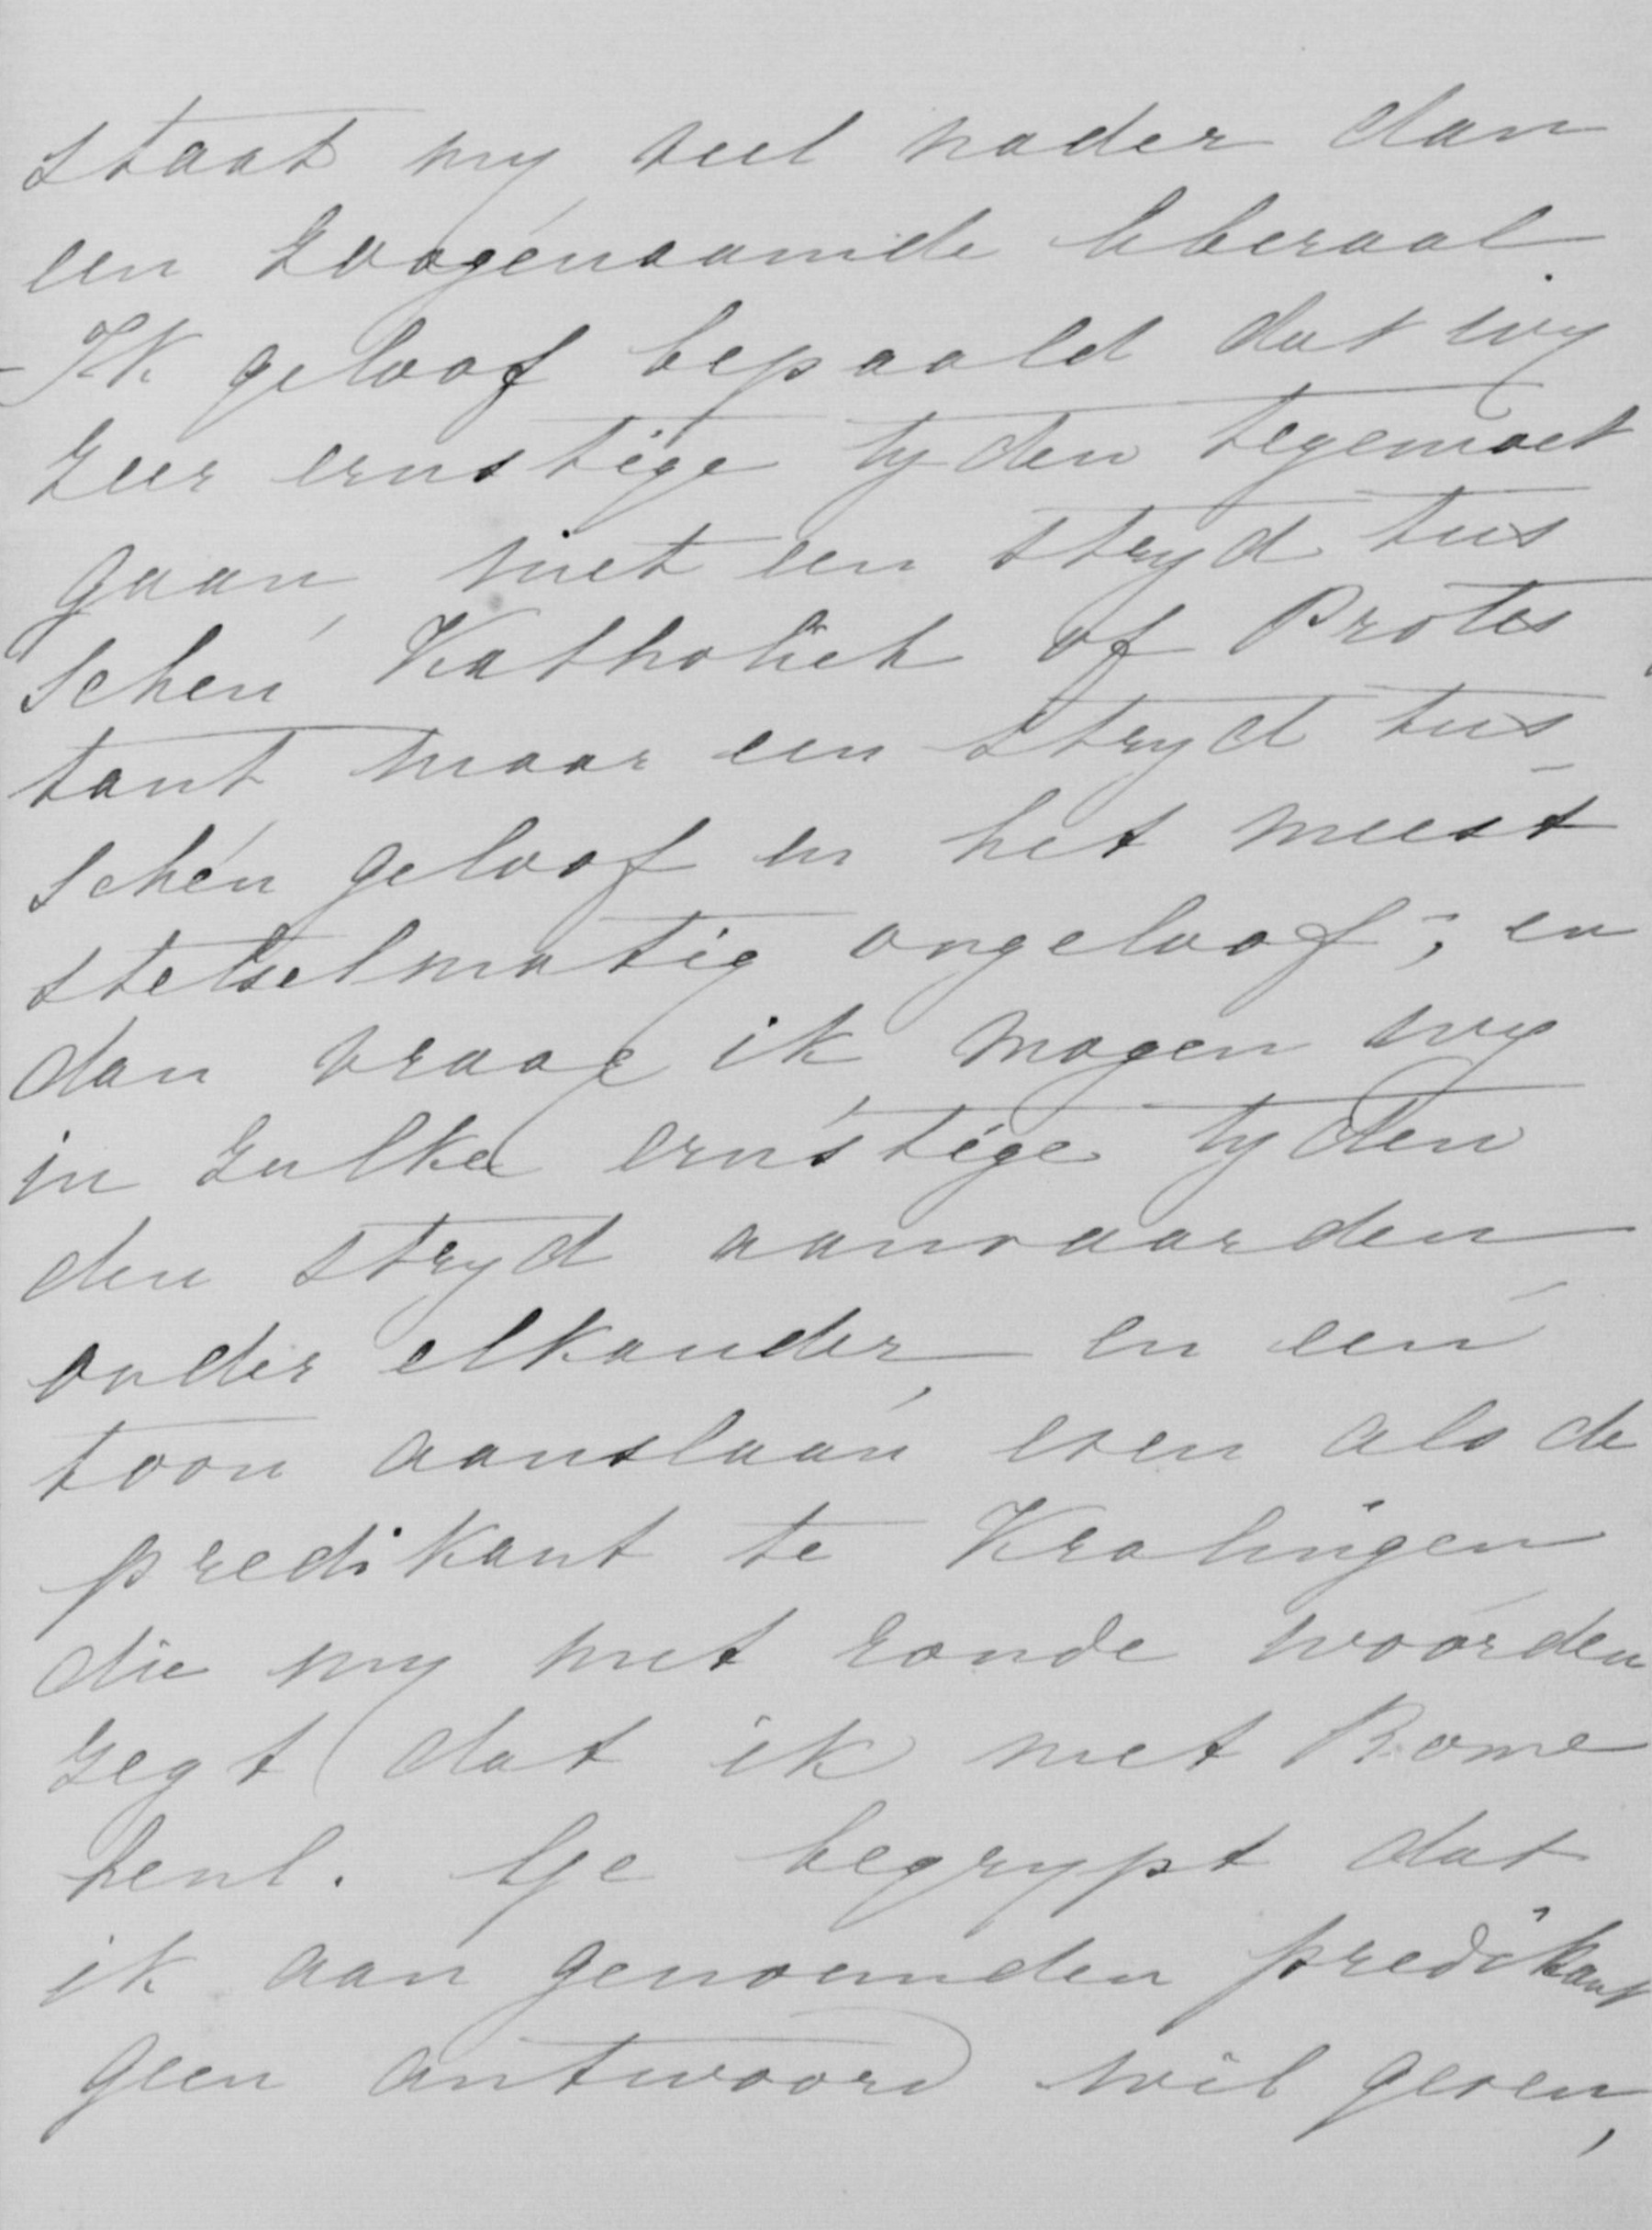 staat my veel nader dan
een zoogenaamde liberaal.
- Ik geloof bepaald dat wy
zeer ernstige tyden tegemoet
gaan, niet een stryd tus
schen Katholiek of Protes
tant maar een stryd tus-
schen geloof en het meest
stelselmatig ongeloof; en
dan vraag ik mogen wy
in zulke ernstige tyden
den stryd aanvaarden
onder elkander, en een
toon aanslaan even als de
predikant te Kralingen
die my met ronde woorden
zegt dat ik met Rome
heul. Ge begrypt dat
ik aan genoemden predikant
geen antwoord wil geven,